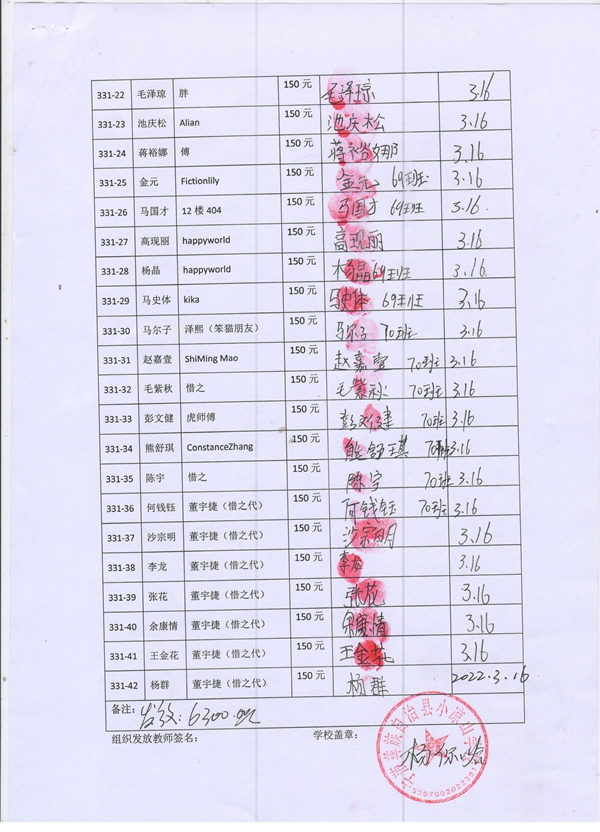 331-22 毛泽琼 胖 150 元 毛泽琼 3.16
331-23 池庆松 Alian 150 元 池庆松 3.16
331-24 蒋裕娜 傅 150 元 蒋裕娜 3.16
331-25 金元 Fictionlily 150 元 金元 69班 3.16
331-26 马国才 12 楼 404 150 元 马国才 69班 3.16.
331-27 高现丽 happyworld 150 元 高现丽 3.16
331-28 杨晶 happyworld 150 元 杨晶 69班 3.16
331-29 马史体 kika 150 元 马史体 69班 3.16
331-30 马尔子 泽熙（笨猫朋友） 150 元 马尔子 70班 3.16
331-31 赵嘉壹 ShiMing Mao 150 元 赵嘉壹 70班 3.16
331-32 毛紫秋 惜之 150 元 毛紫秋 70班 3.16
331-33 彭文健 虎师傅 150 元 彭文健 70班 3.16
331-34 熊舒琪 ConstanceZhang 150 元 熊舒琪 70班 3.16
331-35 陈宇 惜之 150 元 陈宇 70班 3.16
331-36 何钱钰 董宇捷（惜之代） 150 元 何钱钰 70班 3.16
331-37 沙宗明 董宇捷（惜之代） 150 元 沙宗明 3.16
331-38 李龙 董宇捷（惜之代） 150 元 李龙 3.16
331-39 张花 董宇捷（惜之代） 150 元 张花 3.16
331-40 余康情 董宇捷（惜之代） 150 元 余康情 3.16
331-41 王金花 董宇捷（惜之代） 150 元 王金花 3.16
331-42 杨群 董宇捷（惜之代） 150 元 杨群 2022.3.16
备注: 发放: 6300.00
组织发放教师签名： 学校盖章：
宁蒗彝族自治县小凉山学校